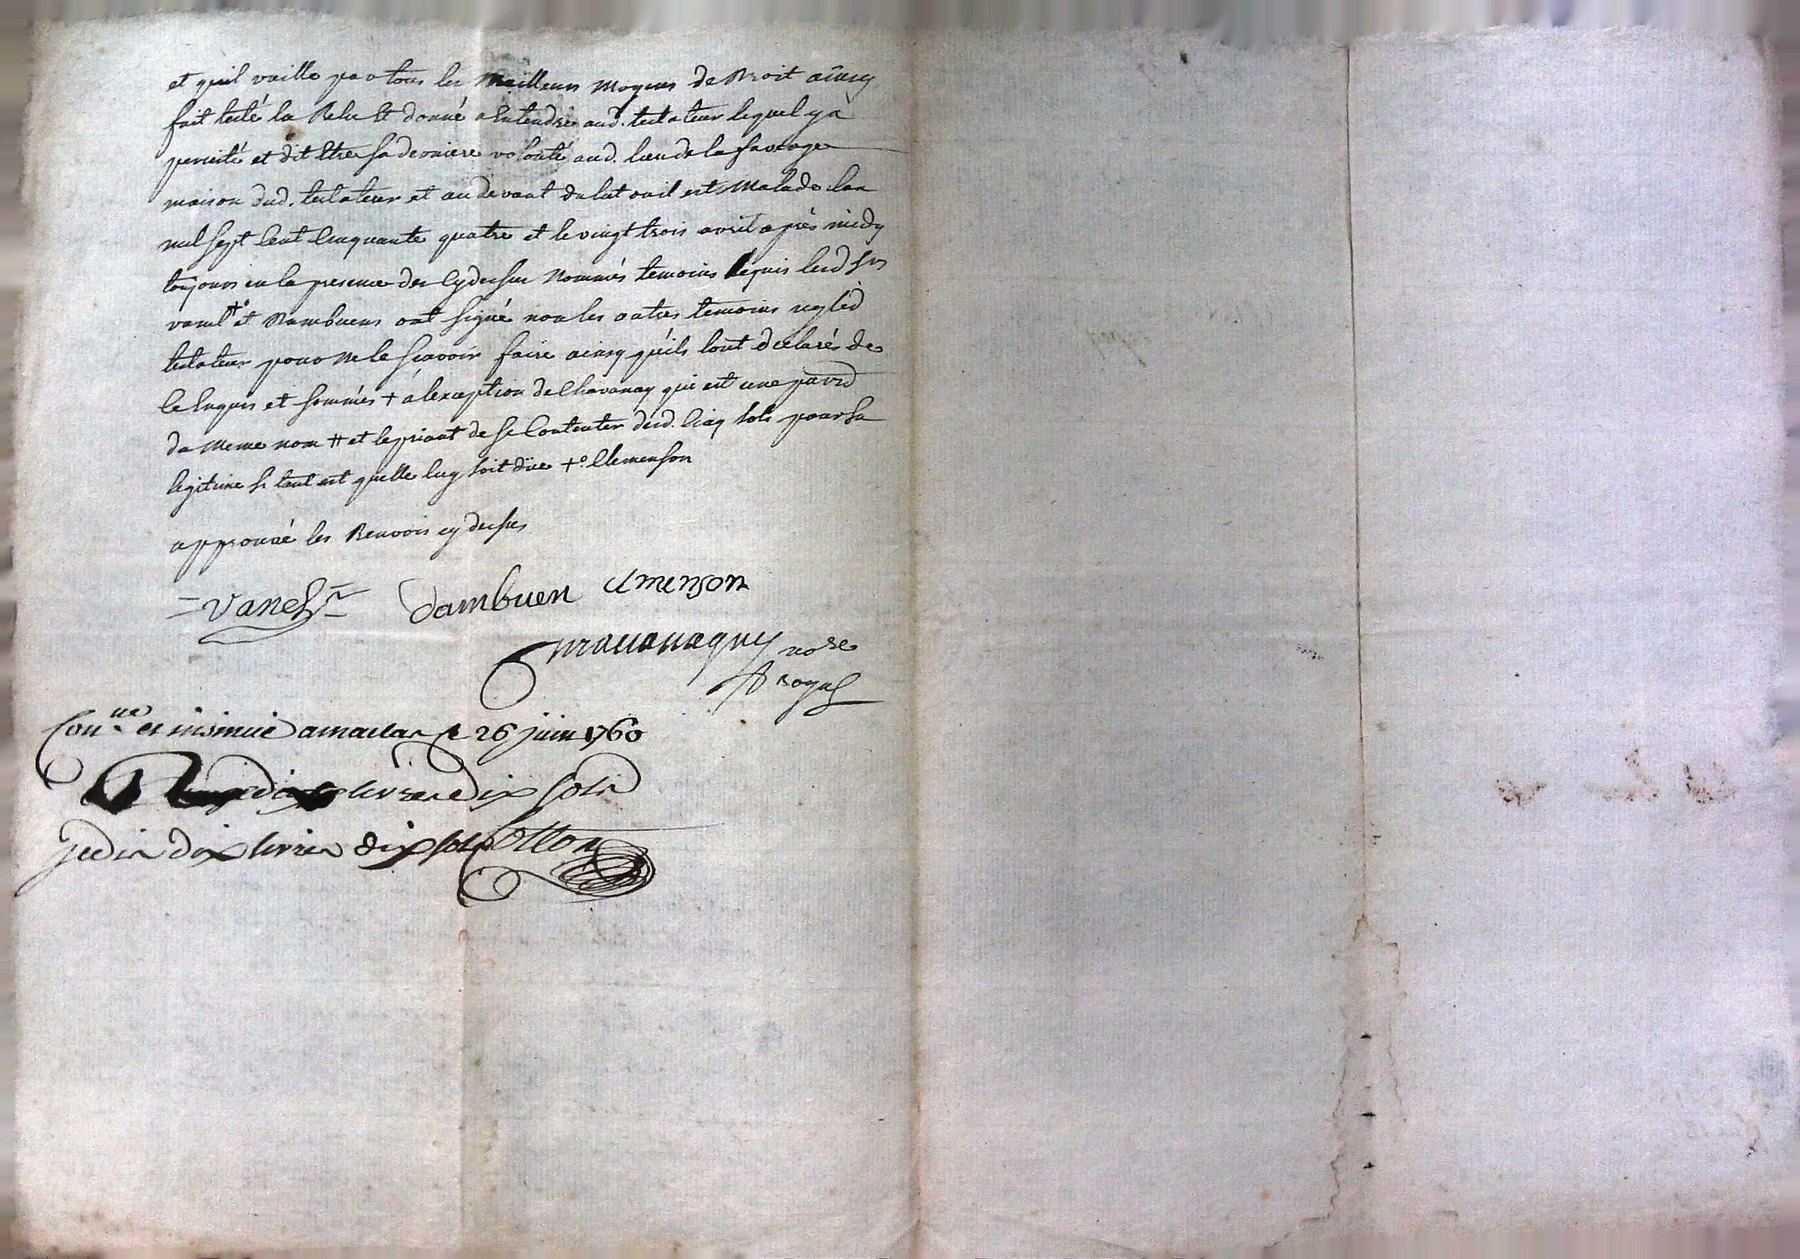 et quil vaille par tous les meilleurs moyens de Droit ainsy
fait testé la Relu et donné a Entendre aud. testateur lequel y a
percisté et dit Etre sa derniere volonté aud. lieu de la
maison dud. testateur et au devant du lit ou il est Malade lan
mil sept Cent Cinquante quatre et le vingt trois avril après midy
toujours en la presence des Cydessus Nommés temoins lesd Srs
et Dambuens ont signé non les autres temoins ny led
testateur pour Ne le sçavoir faire ainsy quils lont declarés de
ce Enquis et sommés + a lexception de Chavanay qui est une
du Meme nom # et le priant de se Contenter desd. Cinq sols pour sa
legitime si tant est quelle luy soit düe +° Clemenson
approuvé les Renvois cy dessus
Vanel
dambuen clmenson
no re
Royal
Con.lle et insinué a le 26 juin 1760
livres dix sols
je dis dix livres dix sols